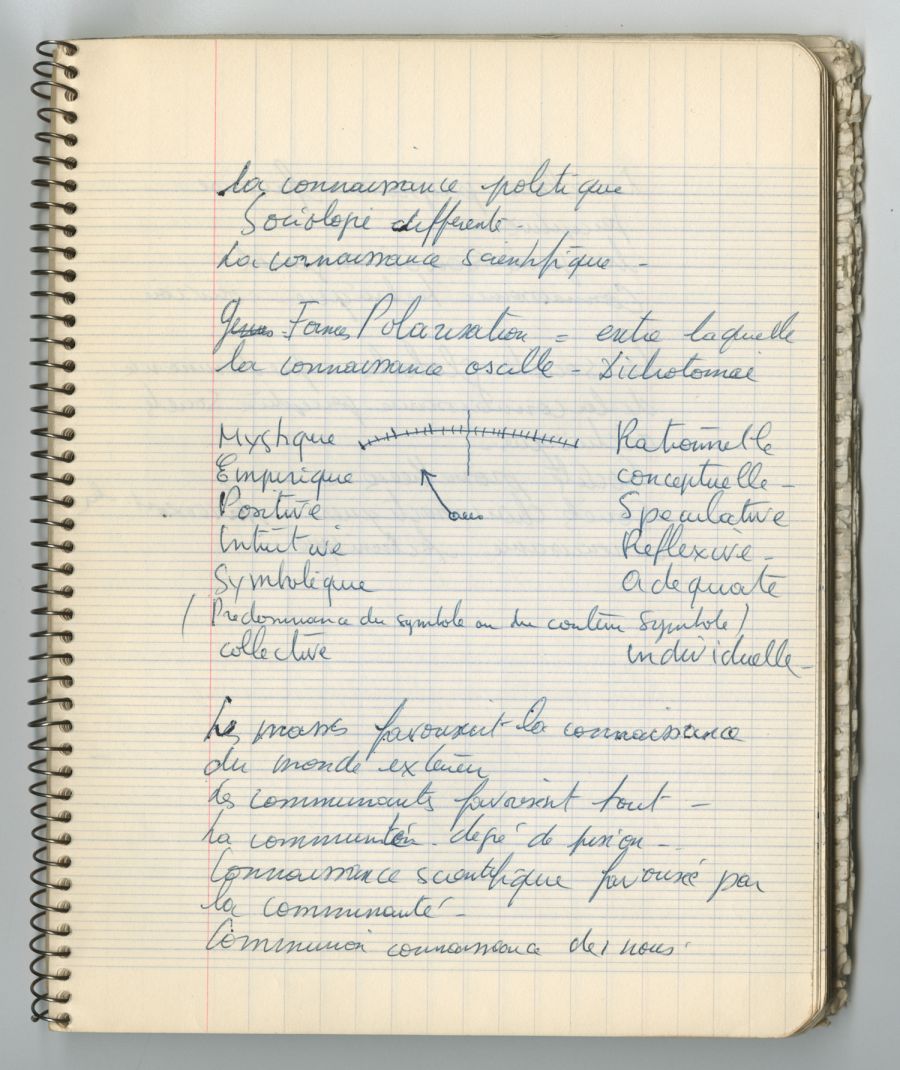 La connaissance politique
Sociologie différente -
La connaissance scientifique -
Formes Polarisation = entre laquelle
la connaissance oscille - Dichotomie
Mystique Rationnelle
Empirique conceptuelle -
Positive Speculative
Intuitive Reflexive -
Symbolique adequate
( Predominance du symbole ou du contenu Symbole )
collective individuelle -
Les masses favorisent la connaissance
du monde extérieur
Les communautés favorisent tout -
La communion - degré de fusion - -
Connaissance scientifique favorisée par
la communauté -
Communion connaissance des nous